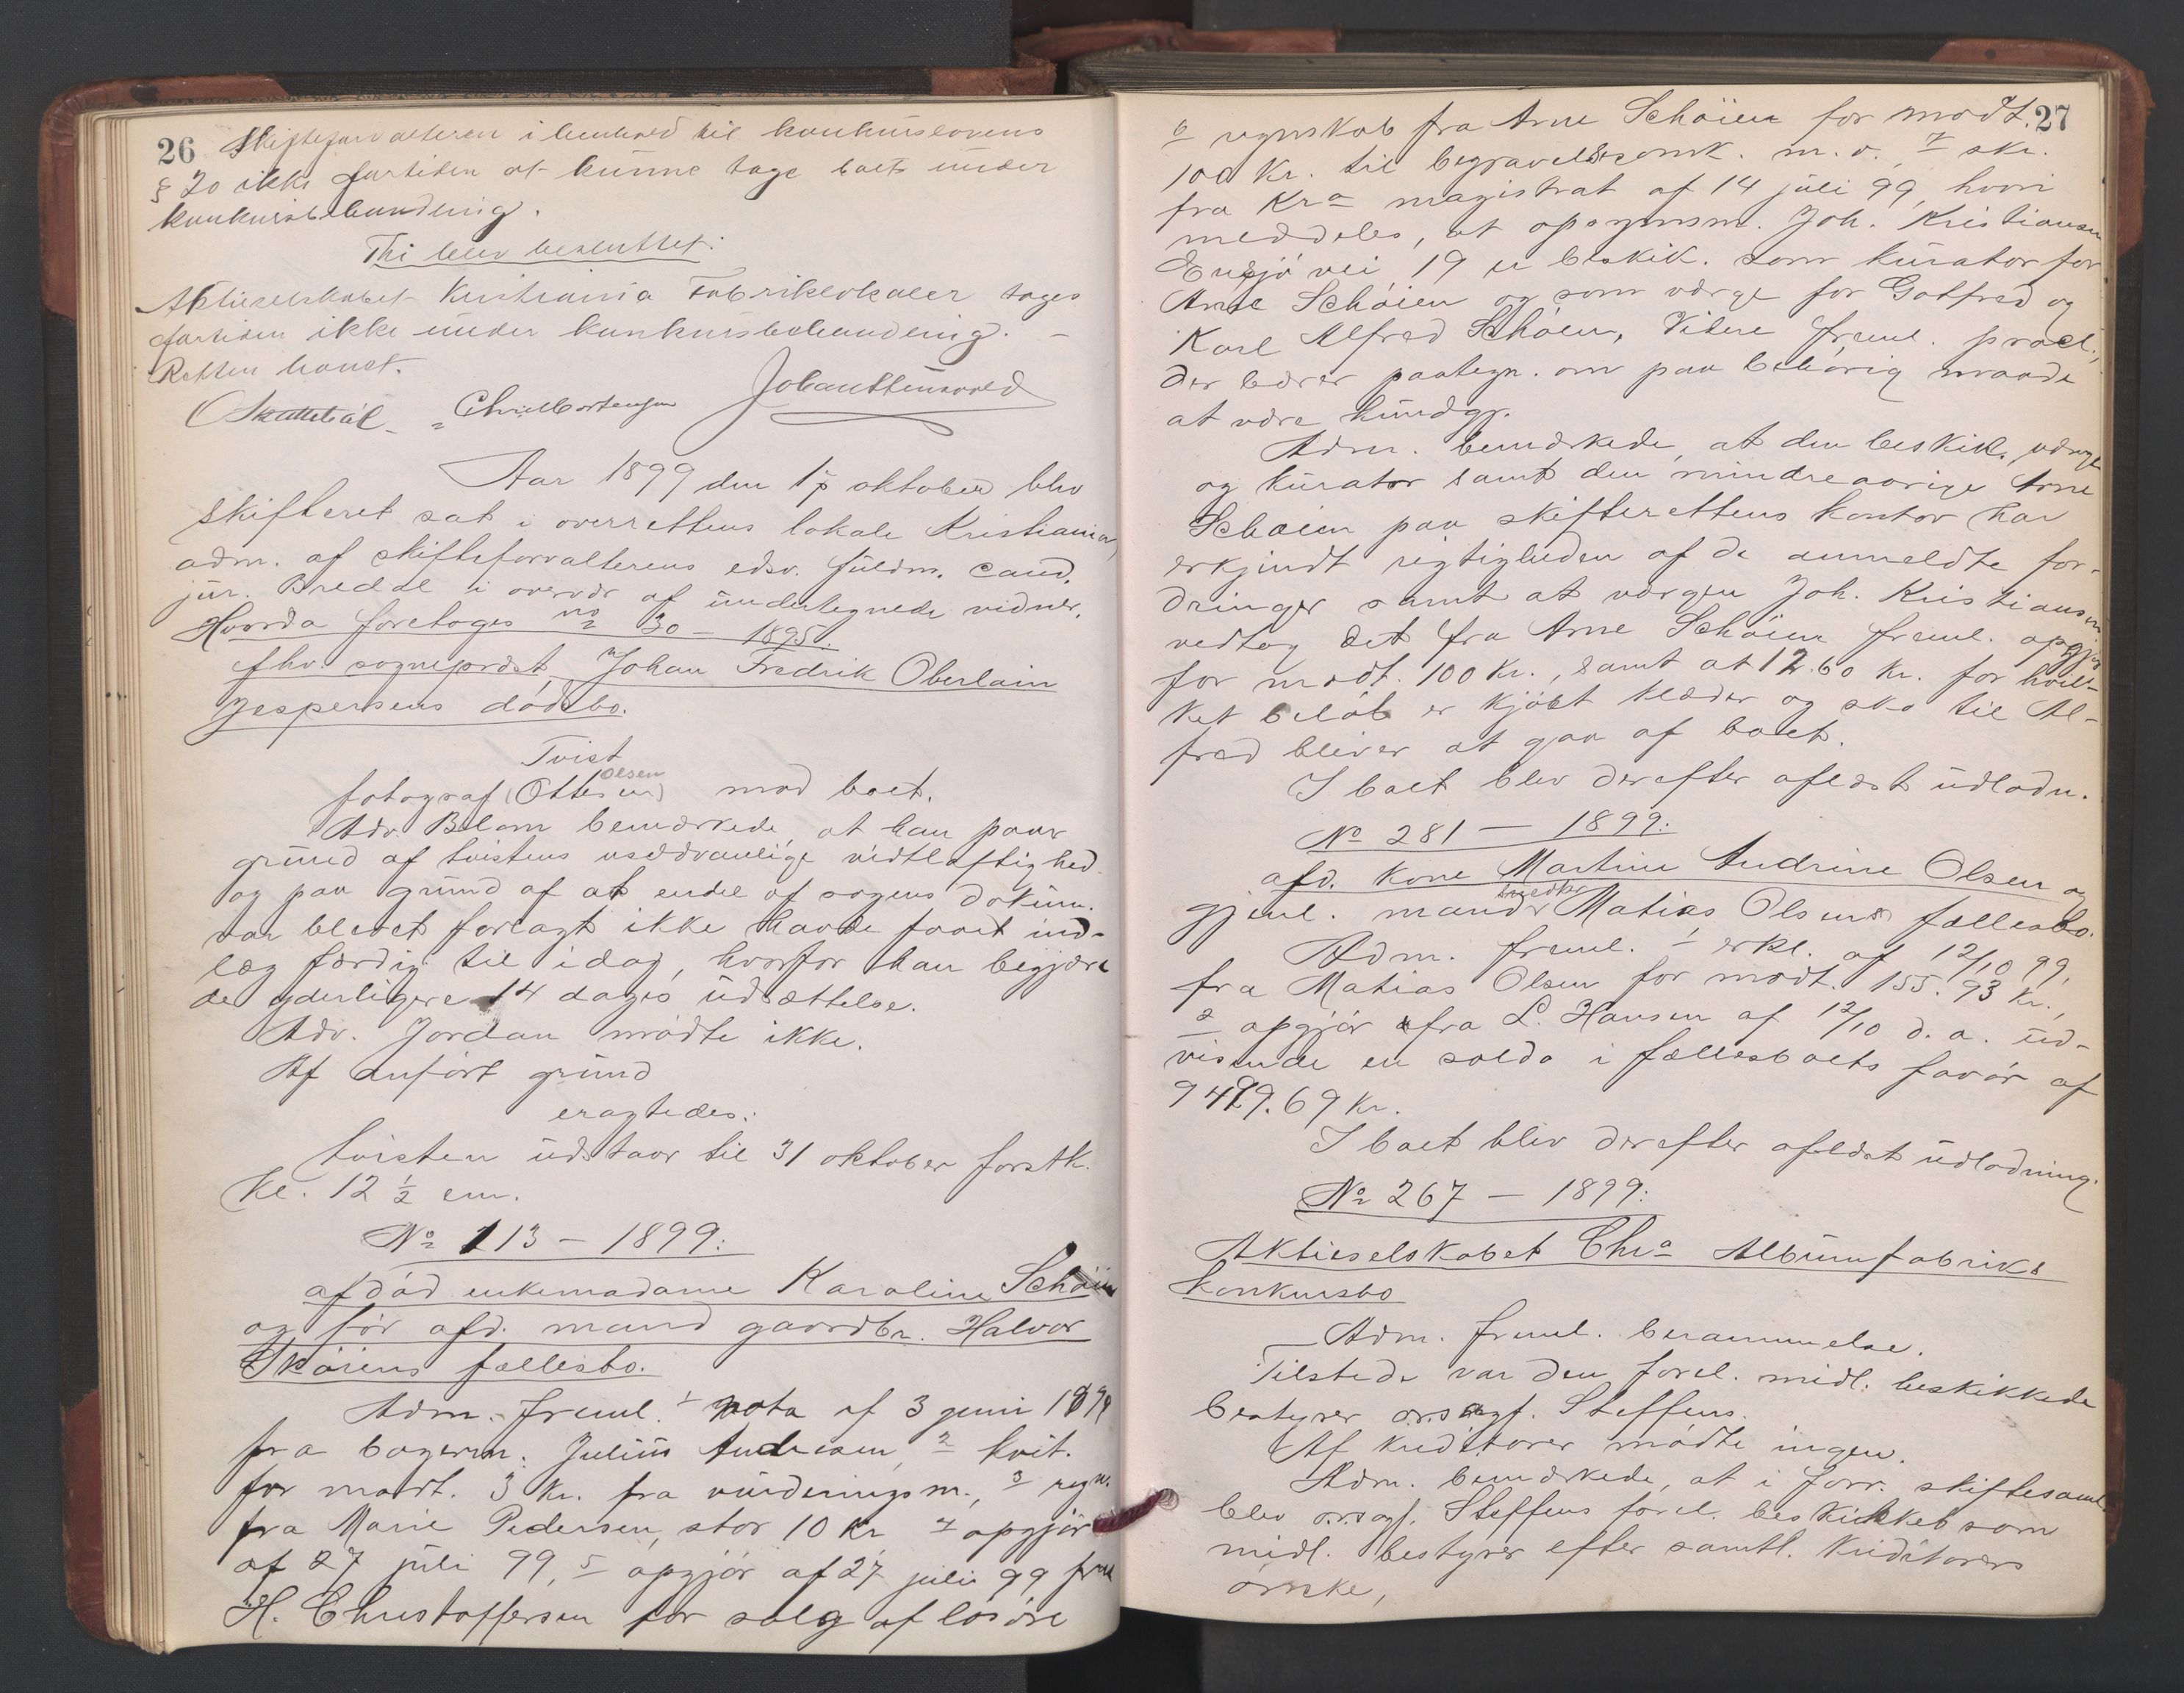 26 Skifteforvalteren i henhold til konkurslovens
§ 20 ikke fortiden at kunne tage boet under
konkursbehandling.
Thi blev besluttet:
Aktieselskabet Kristiania Fabriklokaler tages
fortiden ikke under konkursbehandling. –
Retten hævet.
Aar 1899 den 17 oktober blev
skifteret sat i overrettens lokale Kristiania,
adm. af skifteforvalterens edsv. fuldm. cand.
jur. Bredal i overvær af undertegnede vidner.
Hvorda foretoges No 30 – 1895.
fhv. sogneprest Johan Fredrik Oberlain
Jespersens dødsbo.
Tvist
olsen
fotograf (Ottesen) mod boet.
Adv. Blom bemærkede, at han paa
grund af tvistens usædvanlige vidtløftighed
og paa grund af at endel af sagens dokum.
var blevet forlagt ikke havde faaet ind-
læg færdig til idag, hvorfor han begjære
de yderligere 14 dages udsættelse.
Adv. Jordan mødte ikke.
Af anført grund
eragtedes:
tvisten udstaar til 31 oktober førstk.
kl. 12 1/2 em.
No 113 – 1899:
afdød enkemadame Karoline Schøien
og før afd. mand gaardbr. Halvor
Skøiens fællesbo.
Adm. freml. 1 nota af 3 juni 1899
fra bogerm. Julius Andresen, 2 kvit.
for modt. 3 Kr. fra vurderingsm., 3 regn.
fra Marie Pedersen, stor 10 Kr 4 opgjør
af 27 juli 99, 5 opgjør af 27 juli 99 fra
H. Christoffersen for salg af løsøre
27
6 regnskab fra Arne Schøien for modt.
100 Kr. til begravelsesomk. m. v., 7 skr.
fra Kra magistrat af 14 juli 99, hvori
meddeles, at opsynsm. Joh. Kristiansen
Ensjø vei 19 er beskik. som kurator for
Arne Schøien og som værge for Gotfred og
Karl Alfred Schøien, Videre freml. procl.,
der bærer paategn. om paa behørig maade
at være kundgj.
Adm. bemærkede, at den beskik. værge
og kurator samt den mindreaarige Arne
Schøien paa skifterettens kontor har
erkjendt rigtigheden af de anmeldte for-
dringer samt at værgen Joh. Kristiansen
vedtog det fra Arne Schøien freml. opgjør
for modt. 100 Kr., samt at 12.60 Kr. for hvil-
ket beløb er kjøbt klæder og sko til Al-
fred bliver at gaa af boet.
I boet blev derefter aflæst udlodn.
No 281 – 1899:
afd. kone Martine Andrine Olsen og
snedker
gjenl. mand Matias Olsens fællesbo.
Adm. freml. 1 erkl. af 12/10 99,
fra Matias Olsen for modt. 155.93 Kr.,
2 opgjør fra L. Hansen af 12/10 d. a. ud-
visende en saldo i fællesboets favør af
9499.69 Kr.
I boet blev derefter aflæst udlodning.
No 267 – 1899:
Aktieselskabet Chra Albumfabriks
konkursbo
Adm. freml. berammelse.
Tilstede var den forel. midl. beskikkede
bestyrer o.r.sagf. Steffens.
Af kreditorer mødte ingen.
Adm. bemærkede, at i forr. skiftesaml.
blev o.r.sagf. Steffens forel. beskikket som
midl. bestyrer efter samtl. kreditorers
ønske,